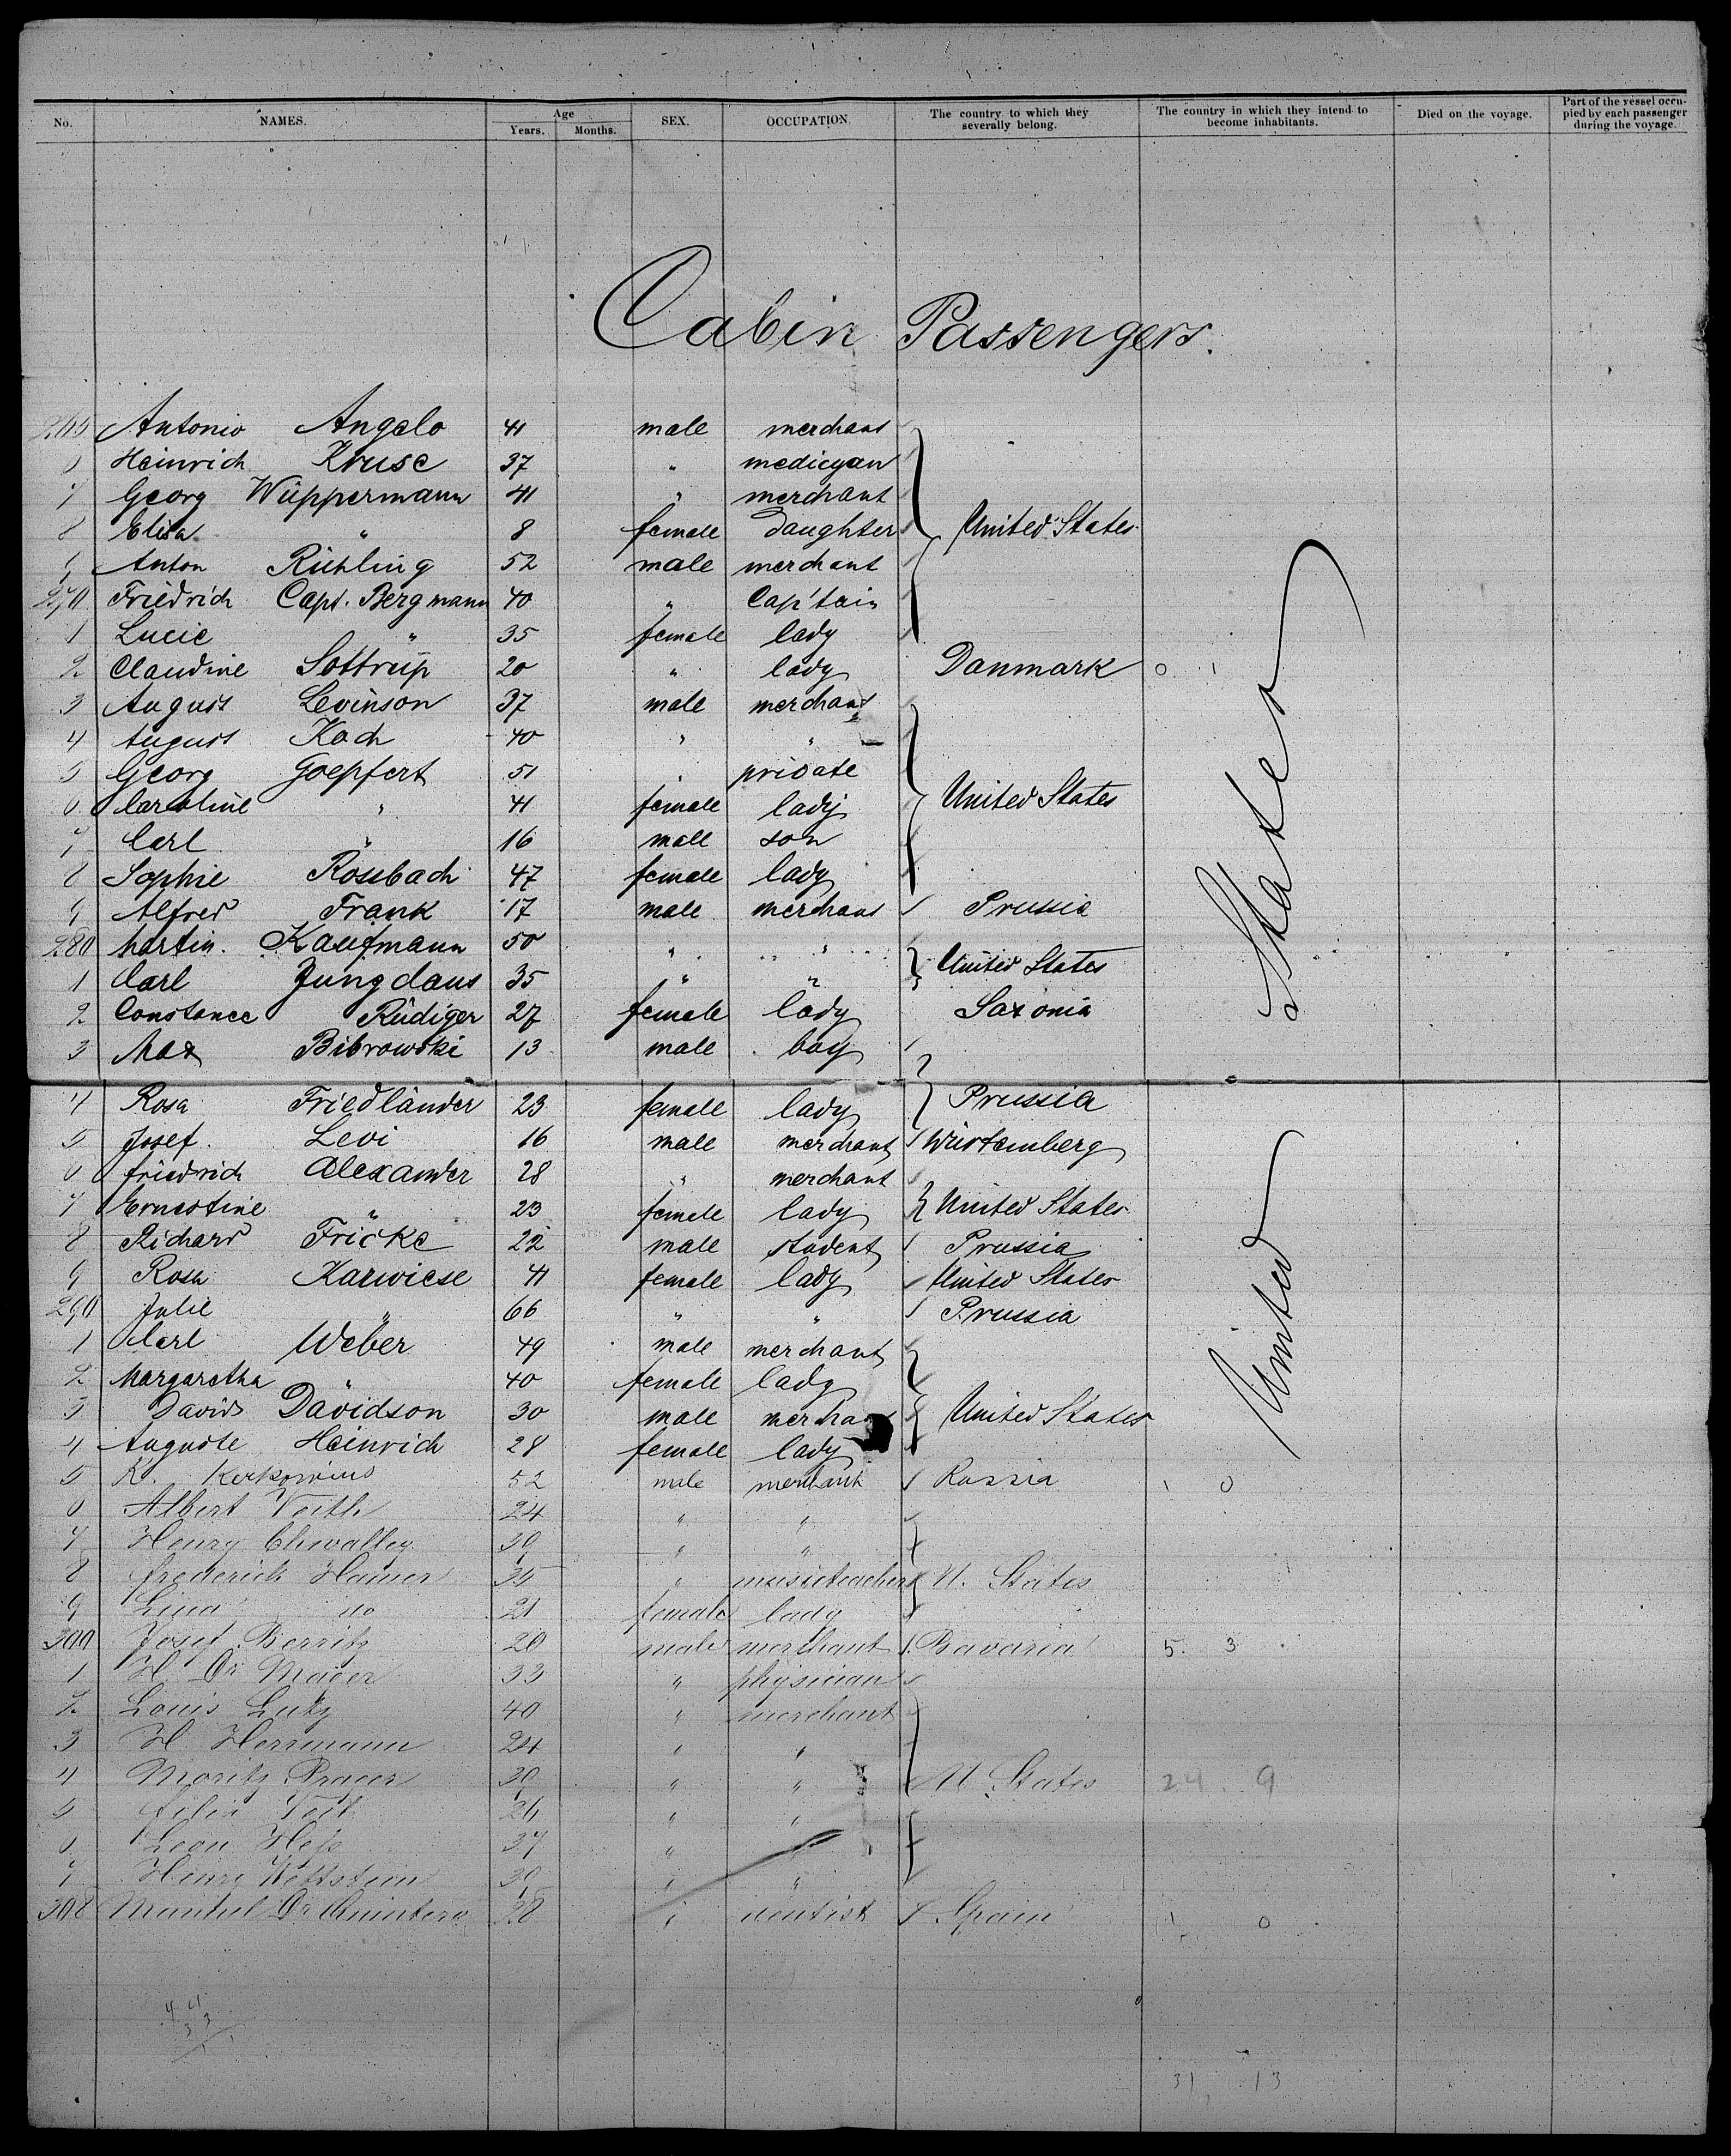 No. NAMES. Age Years. Months. SEX. OCCUPATION. The country to which they severally belong. The country in which they intend to become inhabitants. Died on the voyage. Part of the vessel occupied by each passenger during the voyage.
Cabin Passengers.
265 Antonio Angelo 41 male merchant
6 Heinrich Kruse 37 " medicyan
7 Georg Wüppermann 41 " merchant
8 Elisa " 8 female daughter United States
9 Anton Rühling 52 male merchant
270 Friedrich Capt. Bergmann 40 " Cap'tain
1 Lucie " 35 female lady
2 Claudine Sottrup 20 " lady Danmark 0 1
3 August Levinson 37 male merchant
4 August Koch 40 " "
5 Georg Goepfert 51 " private
6 Caroline " 41 female lady United States
7 Carl " 16 male son
8 Sophie Rossbach 47 female lady
9 Alfred Frank 17 male merchant Prussia
280 Martin Kaufmann 50 " "
1 Carl Jungclaus 35 " " United States
2 Constance Rüdiger 27 female lady Saxonia
3 Max Bibrowski 13 male boy
4 Rosa Friedländer 23 female lady Prussia
5 Josef Levi 16 male merchant Würtemberg
6 Friedrich Alexander 28 " merchant
7 Ernestine " 23 female lady United States
8 Richard Fricke 22 male student Prussia
9 Rosa Karwiese 41 female lady United States
290 Julie " 66 " " Prussia
1 Carl Weber 49 male merchant
2 Margaretha " 40 female lady
3 David Davidson 30 male merchant United States
4 Auguste Heinrich 28 female lady
5 K. Kerkovius 52 male merchant Russia 1 0
6 Albert Veith 24 " "
7 Henry Chevalley 39 " "
8 Frederich Hamer 35 " musicteacher U. States
9 Lina do 21 female lady
300 Josef Berritz 20 male merchant Bavaria 5 3
1 H Dr Mayer 33 " physician
2 Louis Lutz 40 " merchant
3 H Herrmann 24 " "
4 Moritz 30 " " U. States 24 9
5 Felix Veit 26 " "
6 Leon Heß 37 " "
7 Henry Wettstein 30 " "
308 Manuel Dr Quintero 28 " dentist Spain 1 0
United States
44
33
31 13